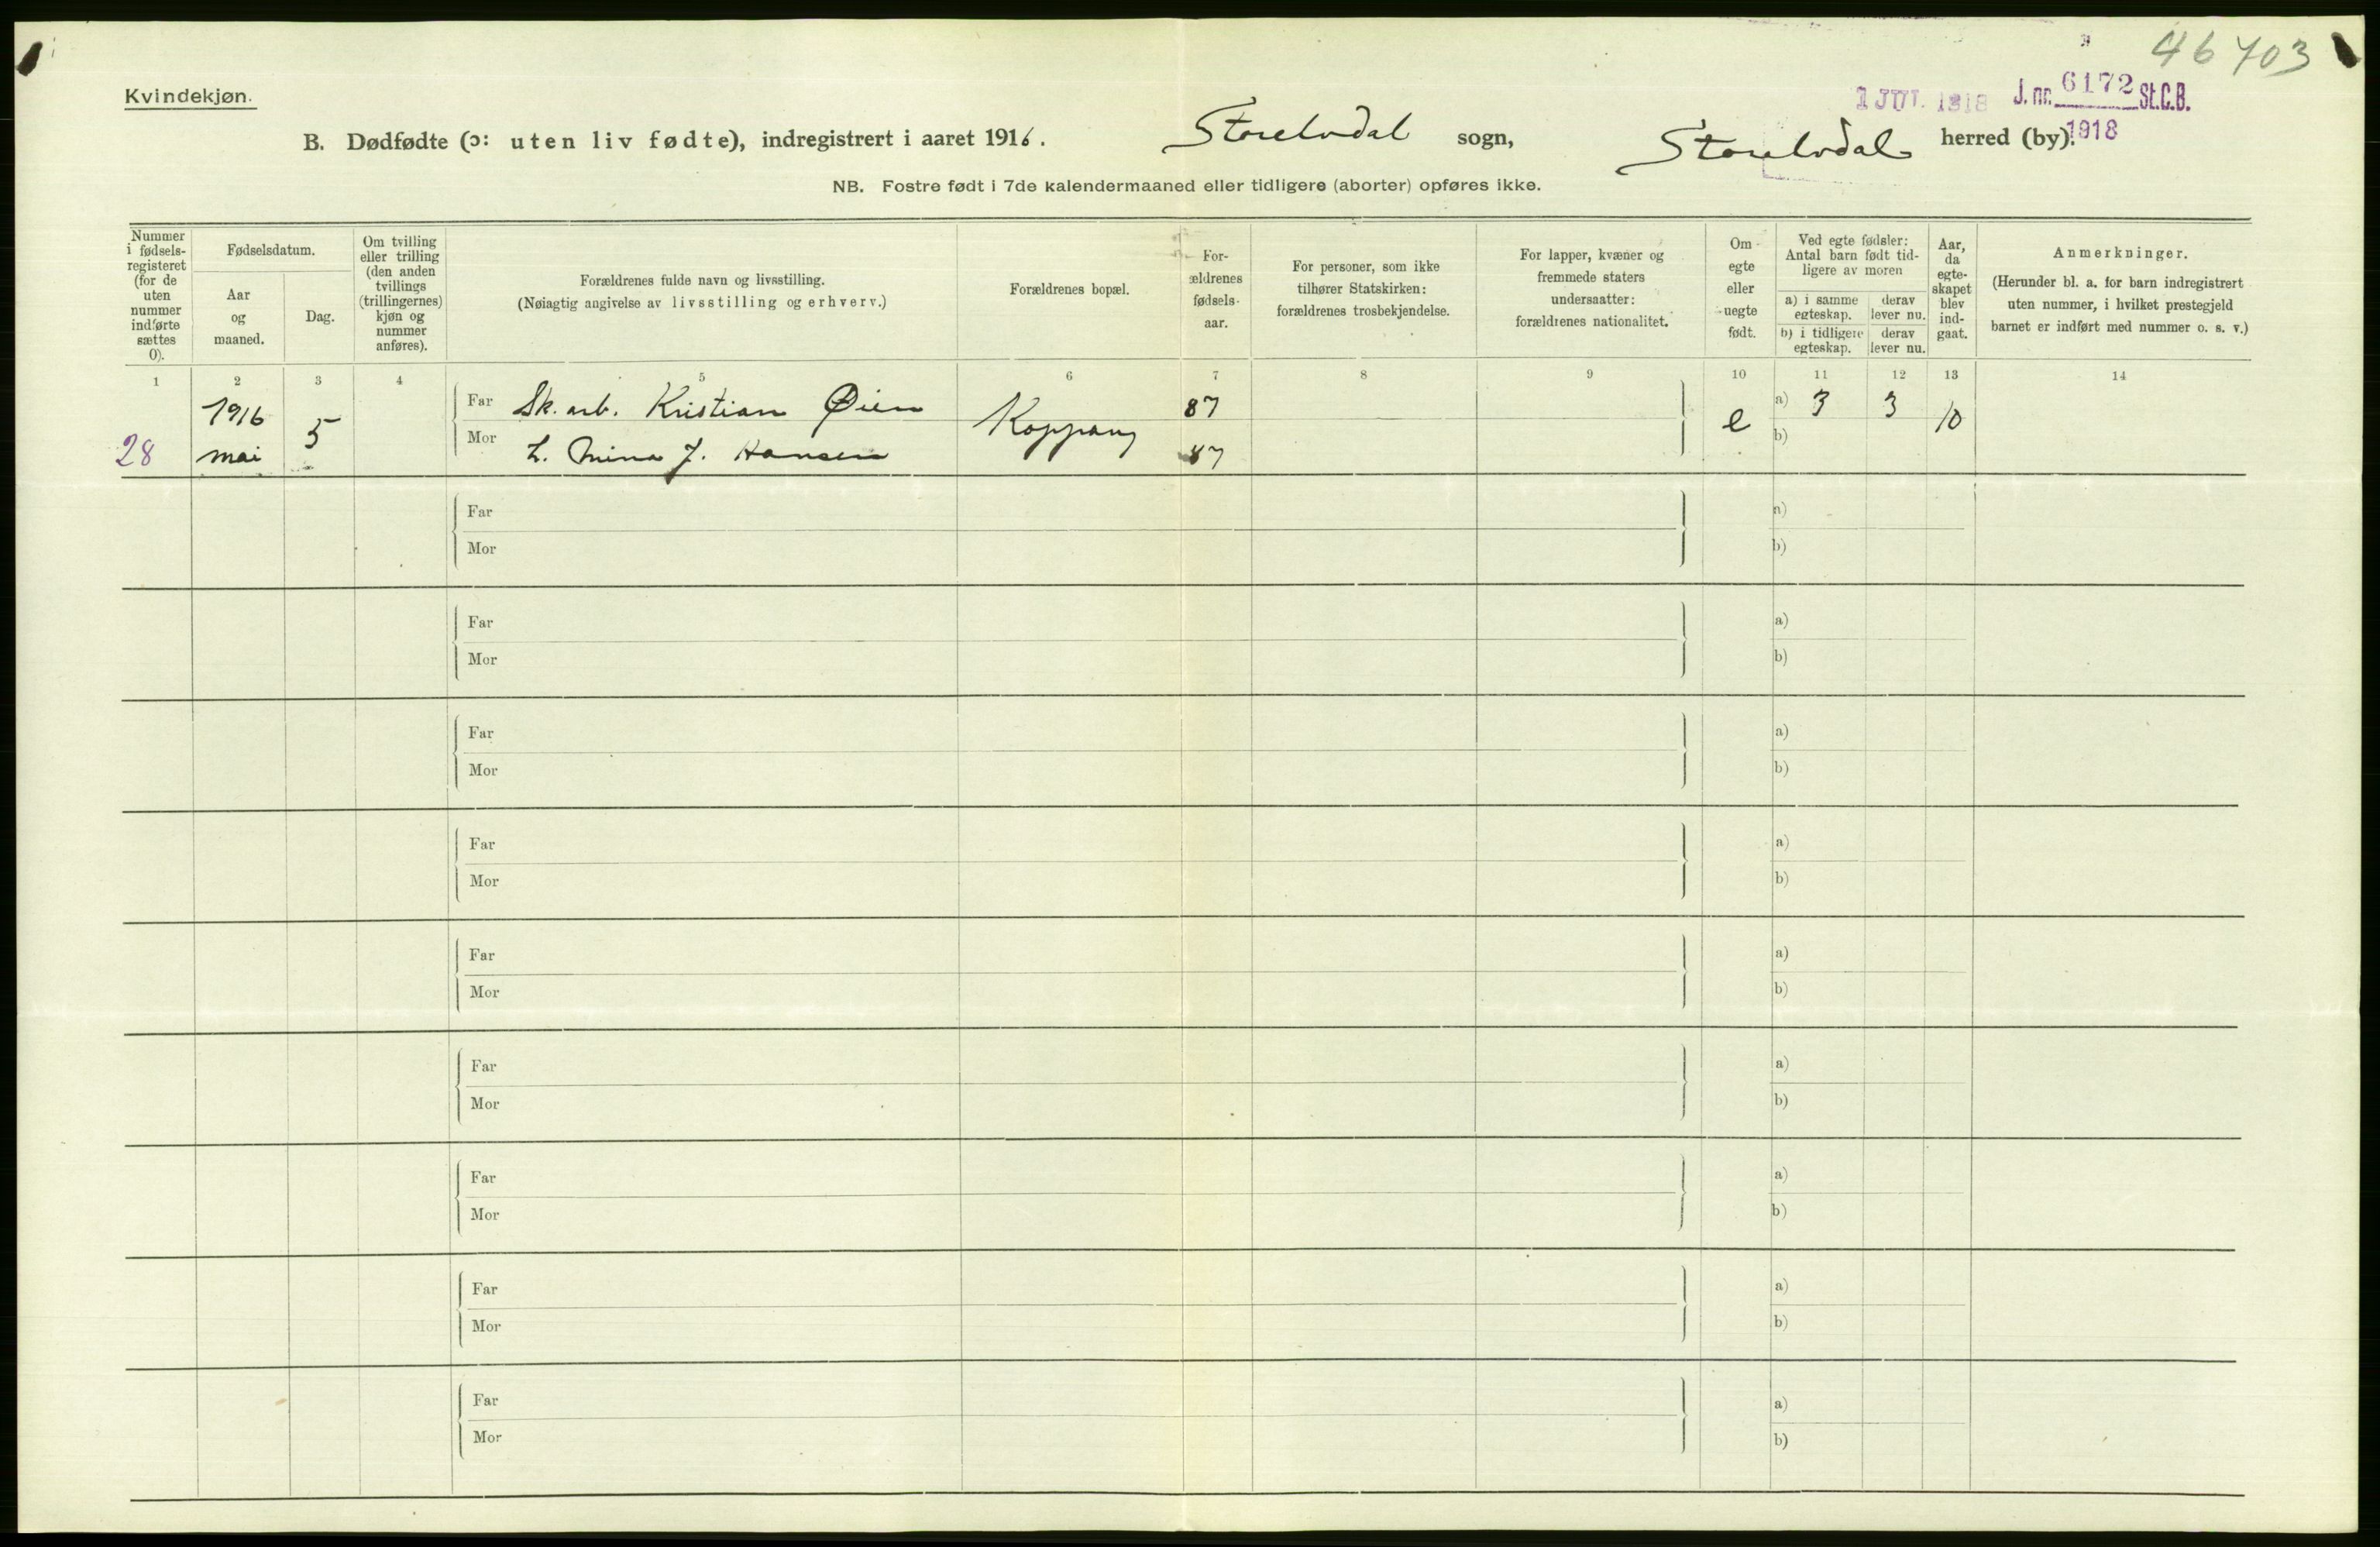 46703
Kvindekjøn.
1 JUL. 1918 J. nr. 6172 St.C.B.
1918
B. Dødfødte (ɔ: uten liv fødte), indregistrert i aaret 1916. Storelvdal sogn, Storelvdal herred (by).
NB. Fostre født i 7de kalendermaaned eller tidligere (aborter) opføres ikke.
Nummer
i fødsels-
registeret
(for de
uten
nummer
indførte
sættes
0).
Fødselsdatum.
Aar
og
maaned.
Dag.
Om tvilling
eller trilling
(den anden
tvillings
(trillingernes)
kjøn og
nummer
anføres).
Forældrenes fulde navn og livsstilling.
(Nøiagtig angivelse av livsstilling og erhverv.)
Forældrenes bopæl.
For-
ældrenes
fødsels-
aar.
For personer, som ikke
tilhører Statskirken:
forældrenes trosbekjendelse.
For lapper, kvæner og
fremmede staters
undersaatter:
forældrenes nationalitet.
Om
egte
eller
uegte
født.
Ved egte fødsler:
Antal barn født tid-
ligere av moren
a) i samme
egteskap.
derav
lever nu.
b) i tidligere
egteskap.
derav
lever nu.
Aar,
da
egte-
skapet
blev
ind-
gaat.
Anmerkninger.
(Herunder bl. a. for barn indregistrert
uten nummer, i hvilket prestegjeld
barnet er indført med nummer o. s. v.)
1 2 3 4 5 6 7 8 9 10 11 12 13 14
28 1916 mai 5
Far Sk. arb. Kristian Øien Koppang 87 e a) 3 3 10
Mor h. Mina J. Hansen 87 b)
Far a)
Mor b)
Far a)
Mor b)
Far a)
Mor b)
Far a)
Mor b)
Far a)
Mor b)
Far a)
Mor b)
Far a)
Mor b)
Far a)
Mor b)
Far a)
Mor b)